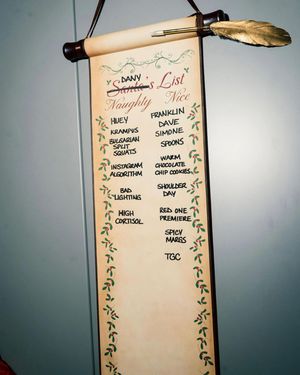 DANY
Santa's List
Naughty Nice
HUEY
KRAMPUS
BULGARIAN
SPLIT
SQUATS
INSTAGRAM
ALGORITHM
BAD
LIGHTING
HIGH
CORTISOL
FRANKLIN
DAVE
SIMONE
SPOONS
WARM
CHOCOLATE
CHIP COOKIES
SHOULDER
DAY
RED ONE
PREMIERE
SPICY
MARGS
TGC